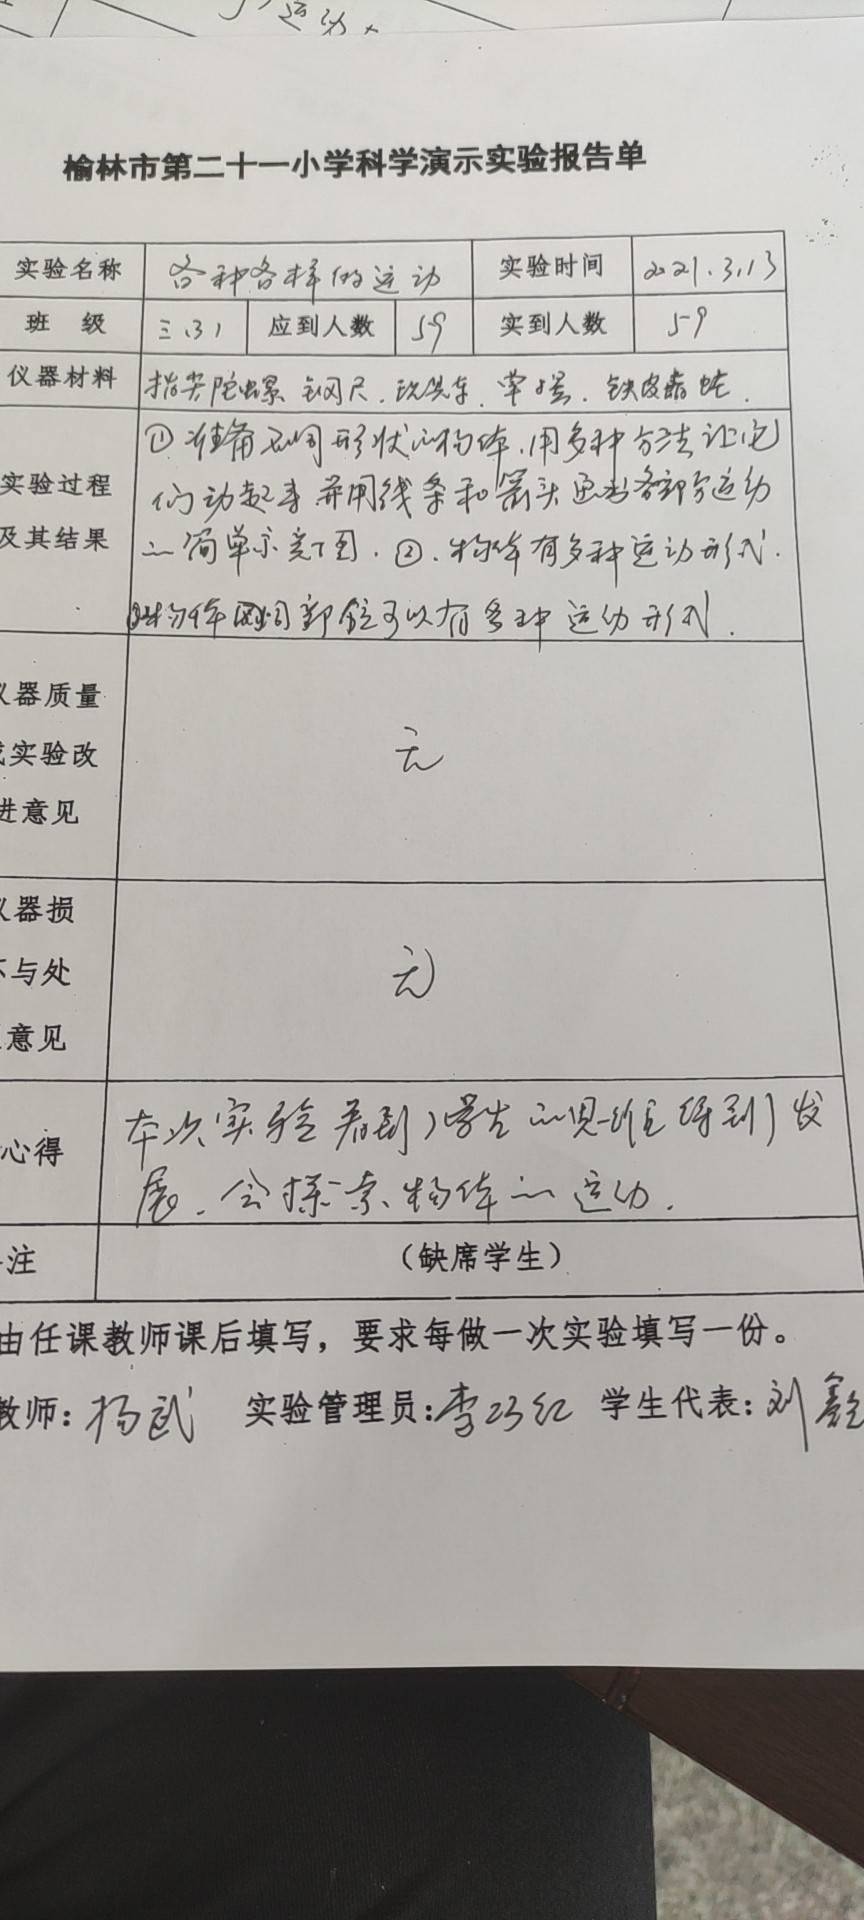 运动
榆林市第二十一小学科学演示实验报告单
实验名称 各种各样的运动 实验时间 2021.3.13
班 级 三(3) 应到人数 59 实到人数 59
仪器材料 指尖陀螺 钢尺.玩具车. 铁皮青蛙.
①准备不同形状的物体,用多种方法让它
实验过程 们动起来并用线条和箭头画出各部分运动
及其结果 的简单示意图.②.物体有多种运动形式.
③物体不同部位可以有多种运动形式.
仪器质量
或实验改 无
进意见
仪器损
坏与处 无
意见
心得 本次实验看到学生的思维得到发
展.会探索物体的运动.
注 (缺席学生)
由任课教师课后填写，要求每做一次实验填写一份。
教师:杨武 实验管理员:李巧红 学生代表:刘鑫